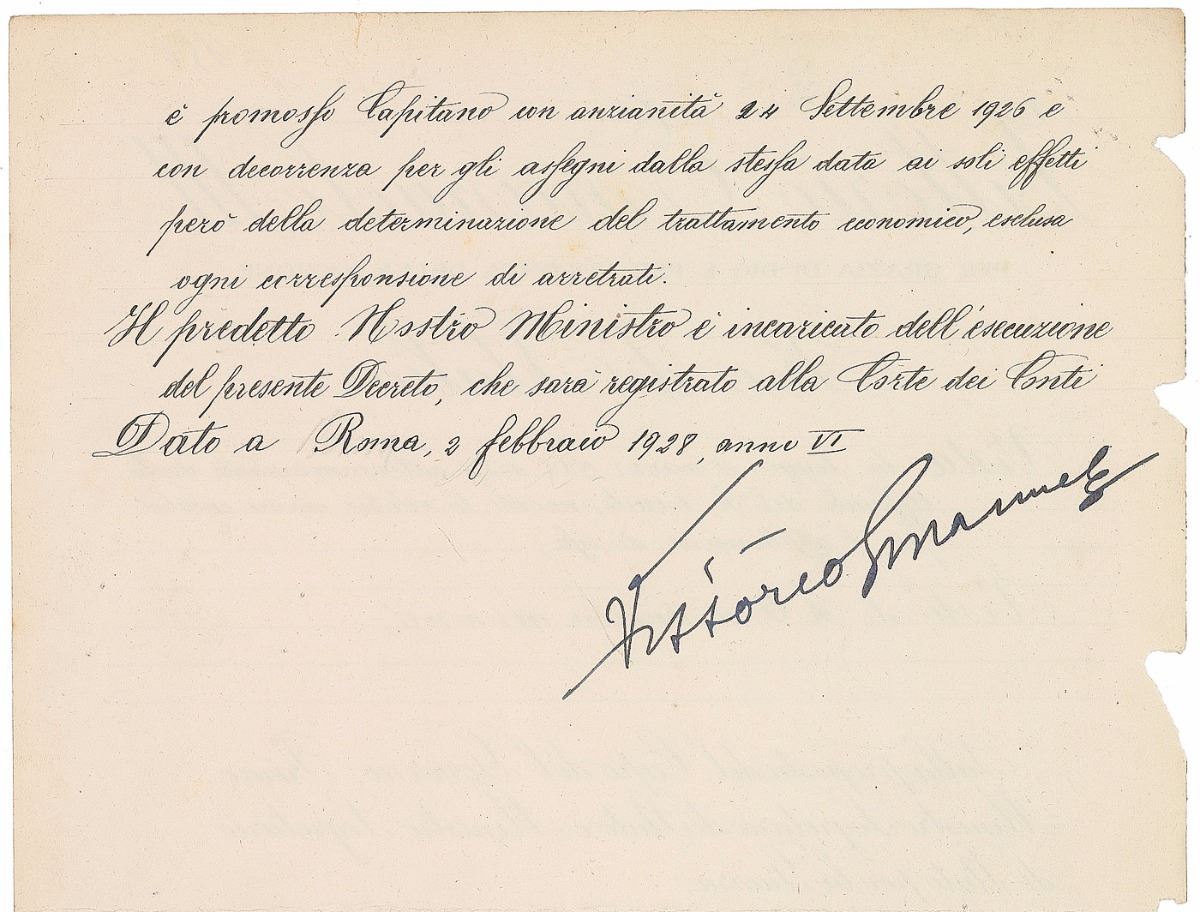 è promosso Capitano con anzianità 24 Settembre 1926 e
con decorrenza per gli assegni dalla stessa data ai soli effetti
però della determinazione del trattamento economico, esclusa
ogni corresponsione di arretrati.
Il predetto Nostro Ministro è incaricato dell'esecuzione
del presente Decreto, che sarà registrato alla Corte dei Conti
Dato a Roma, 2 febbraio 1928, anno VI
Vittorio Emanuele